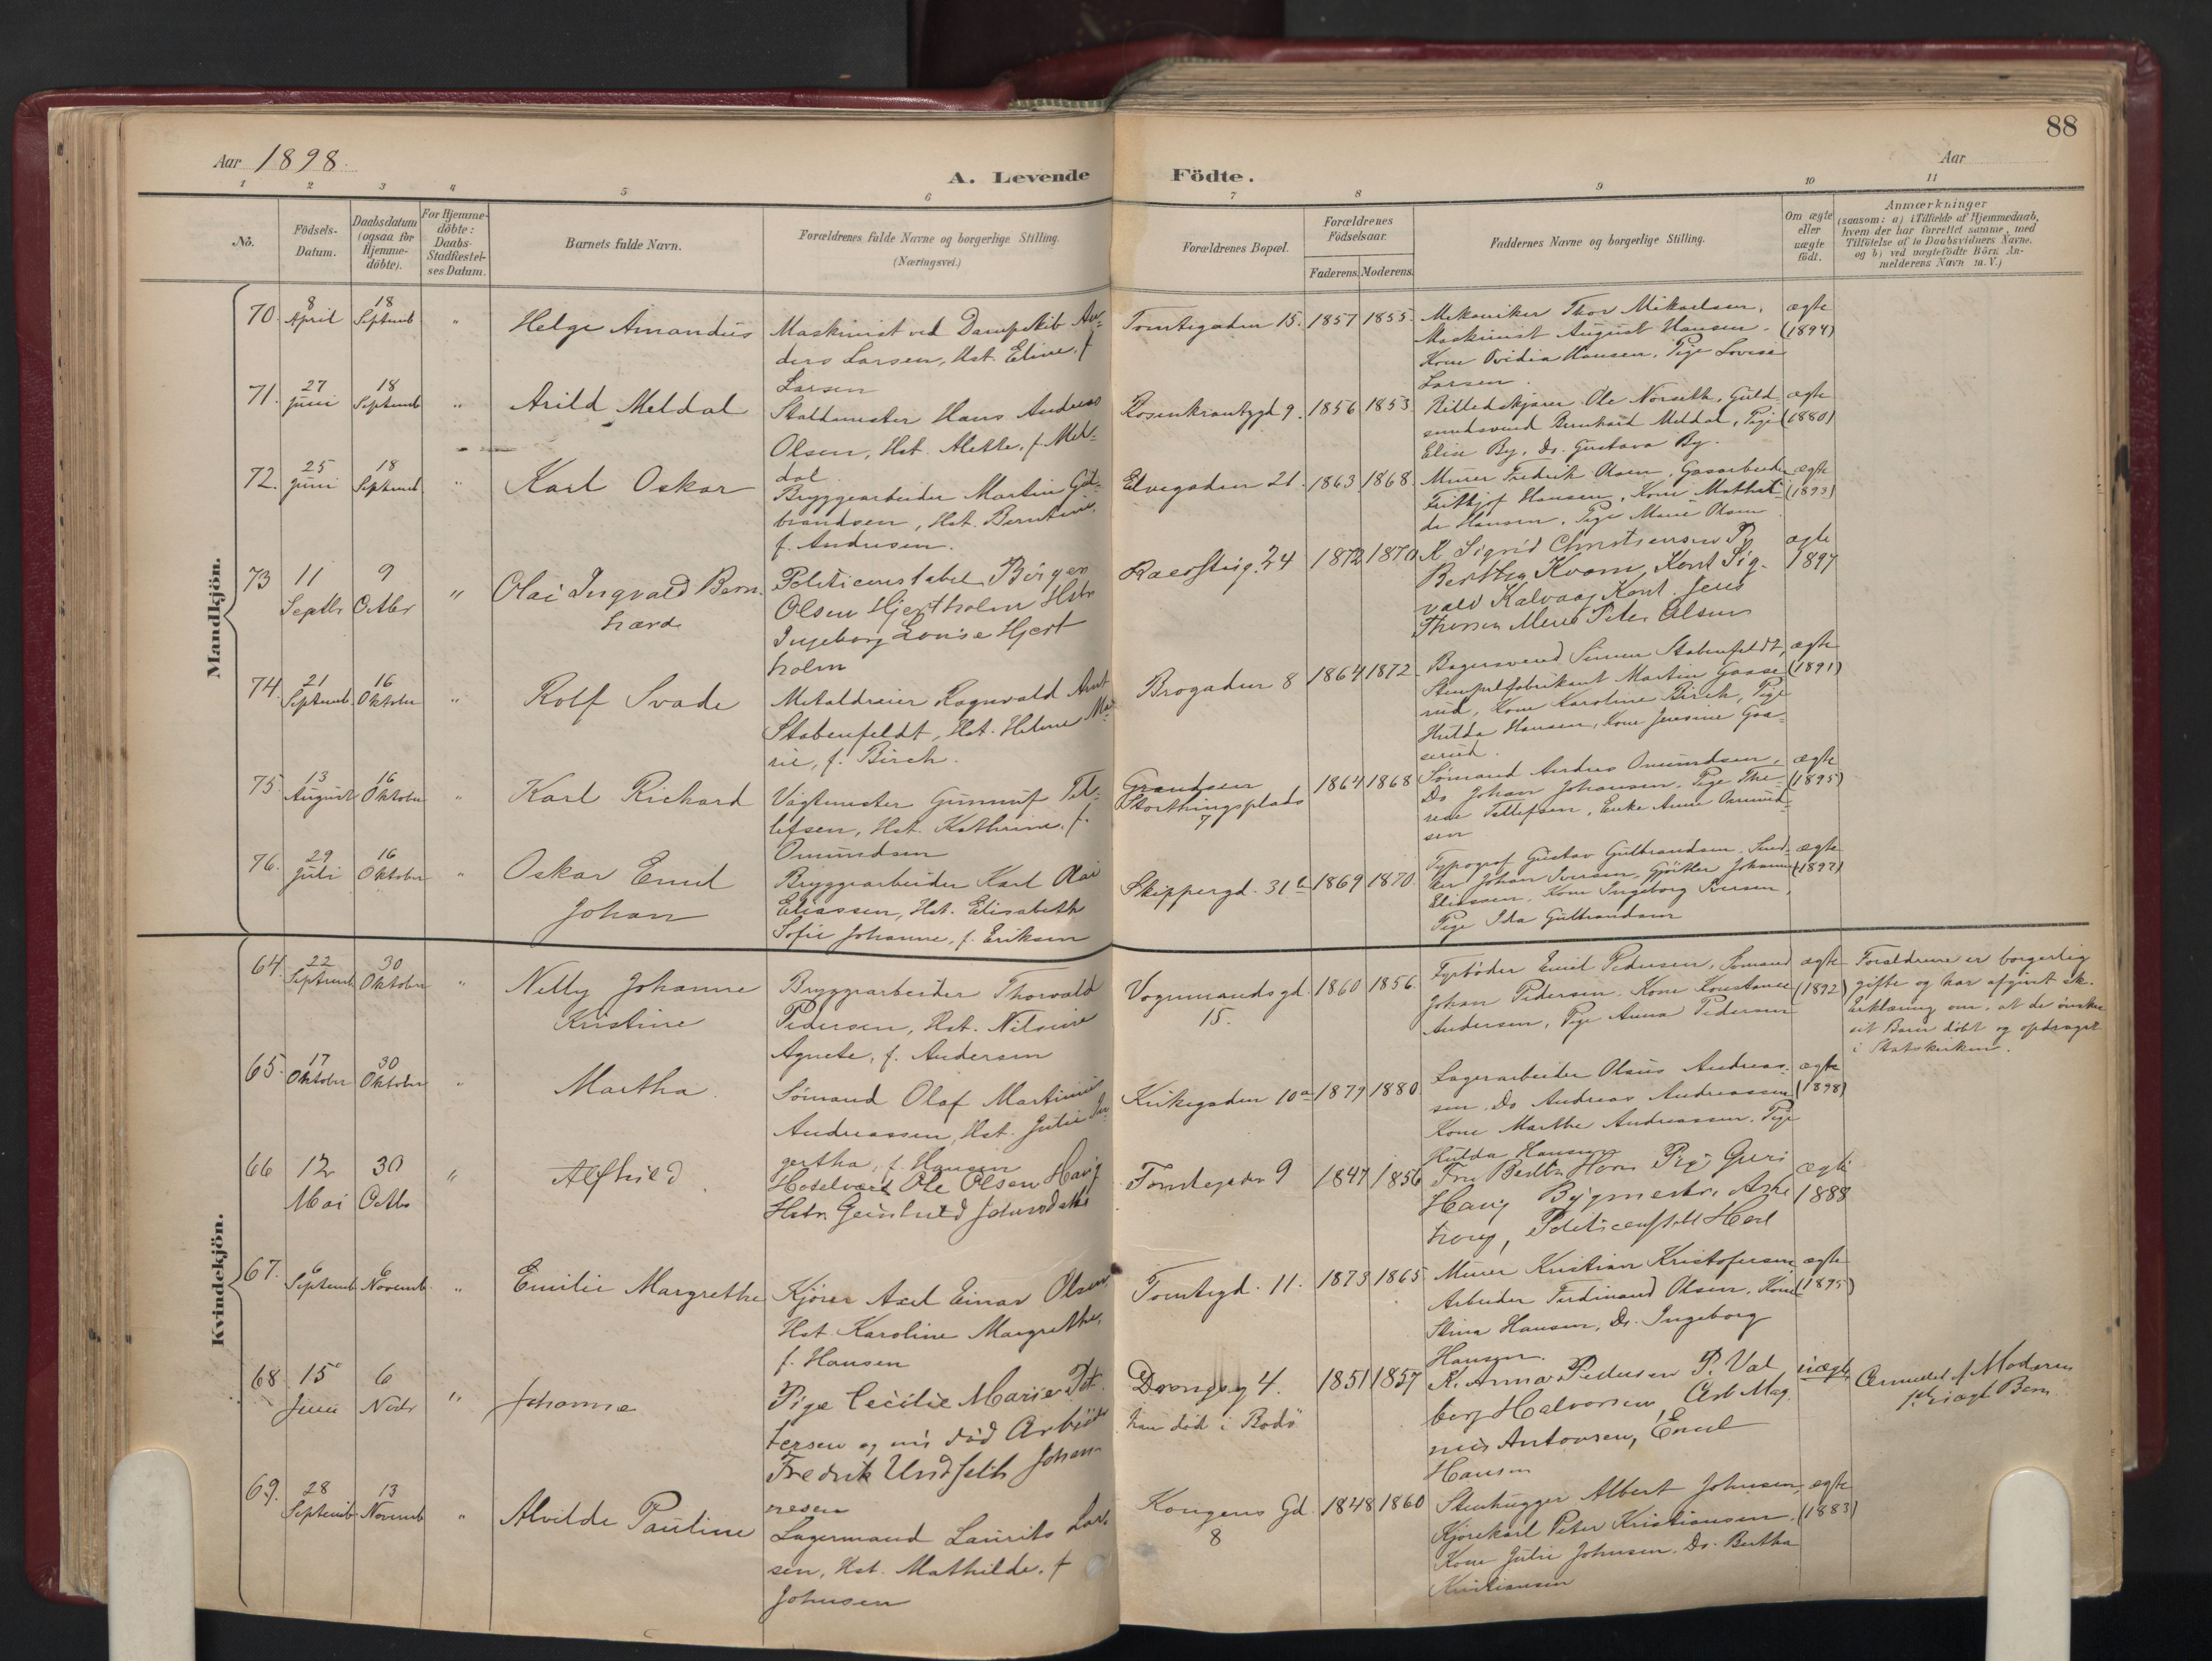 88
Aar 1898.
Aar
A. Levende Födte.
1 2 3 4 5 6 7 8 9 10 11
No.
Födsels-Datum.
Daabsdatum (ogsaa för Hjemme-döbte).
For Hjemme-döbte: Daabs-Stadfæstel-ses Datum.
Barnets fulde Navn.
Forældrenes fulde Navne og borgerlige Stilling.
(Næringsvei.)
Forældrenes Bopæl.
Forældrenes Födselsaar.
Faderens. Moderens.
Faddernes Navne og borgerlige Stilling.
Om ægte eller uægte födt.
Anmærkninger
(saasom: a) i Tilfælde af Hjemmedaab, hvem der har forrettet samme, med Tilföielse af to Daabsvidners Navne, og b) ved uægtefödte Börn Anmelderens Navn m. V.)
Mandkjön.
70. 8 April 18 Septemb " Helge Amandus
Maskinist ved Dampskib An-
ders Larsen, Hst. Eline, f.
Larsen
Tomtegaden 15. 1857 1855.
Mekaniker Thor Mikaelsen,
Maskinist August Hansen.
Kone Ovidia Hansen, Pige Lovise
Larsen.
ægte (1894)
71. 27 Juni 18 Septemb " Arild Meldal
Staldmester Hans Andreas
Olsen, Hst. Alette, f. Mel-
dal.
Rosenkrantzgd 9. 1856 1853.
Billedskjærer Ole Norseth, Guld-
smedsvend Bernhard Meldal, Pige
Elise By, Do. Gustava By.
ægte (1880)
72. 25 Juni 18 Septemb " Karl Oskar
Bryggearbeider Martin Gul-
brandsen, Hst. Berntine,
f. Andresen.
Elvegaden 21. 1863 1868.
Murer Fredrik Olsen, Gasarbeider
Fritjof Hansen, Kone Mathil-
de Hansen, Pige Marie Olsen
ægte (1893)
73 11 Septbr 9 Octbr " Olai Ingvald Bern-
hard.
Politiconstabel Börger
Olsen Hjertholm Hstr
Ingeborg Lovise Hjert
holm
24 1872 1870
K. Sigrid Christiansen P.
Bertha Kvam, Kont Sig-
vald Kalvaag Kont. Jens
Thorsen Peter Olsen
ægte 1897
74. 21 Septemb 16 Oktober " Rolf Svade
Metaldreier Ragnvald Arnt
Stabenfeldt, Hst. Helene Ma-
rie, f. Birch.
Brogaden 8 1864 1872.
Bagersvend Simen Stabenfeldt,
Stempelfabrikant Martin Gaase-
rud, Kone Karoline Birch, Pige
Hulda Hansen, Kone Jensine Gaa-
serud.
ægte (1891)
75. 13 August 16 Oktober " Karl Richard
Vagtmester Gunnuf Tel-
lefsen, Hst. Kathrine, f.
Omundsen
Grændsen
Storthingsplads
7
1864 1868
Sömand Andres Omundsen,
Do Johan Johansen, Pige The-
rese Tellefsen, Enke Anne Omund-
sen
ægte (1895)
76. 29 Juli 16 Oktober " Oskar Emil
Johan
Bryggearbeider Karl Olai
Eliassen, Hst. Elisabeth
Sofie Johanne, f. Eriksen
Skippergd. 31 b 1869 1870.
Typograf Gustav Gulbrandsen, Sned-
ker Johan Iversen, Gjörtler Johannes
Eliassen, Kone Ingeborg Iversen,
Pige Ida Gulbrandsen
ægte (1897)
Kvindekjön.
64. 22 Septemb 30 Oktober " Nelly Johanne
Kristine
Bryggearbeider Thorvald
Pedersen, Hst. Nilsine
Agnete, f. Andersen
Vognmandsgd. 15. 1860 1856.
Fyrböder Emil Pedersen, Sömand
Johan Pedersen. Kone Konstance
Andersen, Pige Anna Pedersen
ægte (1892)
Forældrene er borgerlig
gifte og har afgivet sk.
Erklæring om, at de önske
sit Barn döbt og opdraget
i Statskirken.
65. 17 Oktober 30 Oktober " Martha.
Sömand Olaf Martinius
Andreassen, Hst. Julie In-
gertha, f. Hansen
Kirkegaden 10 a 1879 1880.
Lagerarbeider Olaus Andreas-
sen, Do Andreas Andreassen
Kone Marthe Andreassen, Pige
Hulda Hansen
ægte (1898)
66 12 Mai 30 Octbr " Alfhild.
Hotelvært Ole Olsen Haug
Hstr. Gunhild Johnsdatter
Tomtegaden 9 1847 1856
Fru Bertha Horn Pige Guri
Haug Bygmester
Politiconstbl
ægte 1888
67. 6 Septemb 6 Novemb. " Emilie Margrethe
Kjörer Axel Einar Olsen
Hst. Karoline Margrethe,
f. Hansen
Tomtegd. 11. 1873 1865
Murer Kristian Kristofersen
Arbeider Ferdinand Olsen, Kone
Stina Hansen, Do. Ingeborg
Hansen.
ægte (1895)
68 15 Juni 6 Novbr " Johanne
Pige Cecilie Marie Pet-
tersen og nu död Arbeider
Fredrik Undseth Johan-
nesen
4.
han död i Bodö
1851 1857
K. Anna Pedersen P. Val
borg Halvorsen, Arb Mag-
nus Antonsen, Emil
Hansen
uægte
Anmeldt f Moderen
1ste uægte Barn
69. 28 Septemb 13 Novemb " Alvilde Pauline
Lagermand Laurits Lar-
sen, Hst. Mathilde, f.
Johnsen
Kongens Gd.
8
1848 1860
Stenhugger Albert Johnsen,
Kjörekarl Peter Kristiansen,
Kone Julie Johnsen. Do. Bertha
Kristiansen
ægte (1883)